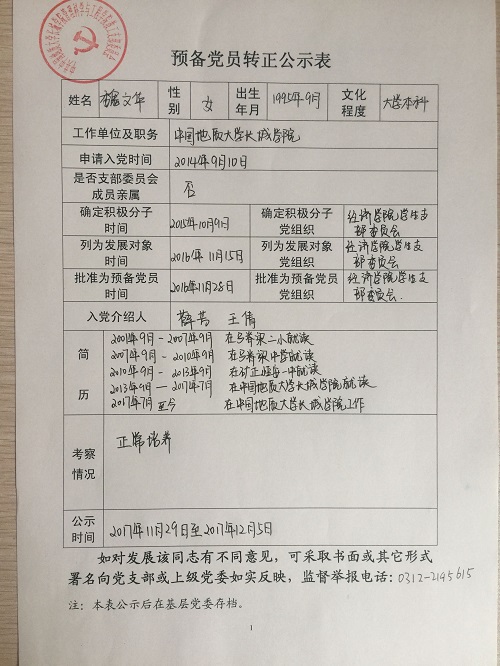 预备党员转正公示表
姓名 文华 性别 女 出生年月 1995年9月 文化程度 大学本科
工作单位及职务 中国地质大学长城学院
申请入党时间 2014年9月10日
是否支部委员会成员亲属 否
确定积极分子时间 2015年10月9日 确定积极分子党组织 经济学院学生支部委员会
列为发展对象时间 2016年11月15日 列为发展对象党组织 经济学院学生支部委员会
批准为预备党员时间 2016年11月28日 批准为预备党员党组织 经济学院学生支部委员会
入党介绍人 薛芳 王倩
简历
2001年9月-2007年9月 在马脊梁二小就读
2007年9月-2010年9月 在马脊梁中学就读
2010年9月-2013年9月 在矿 一中就读
2013年9月—2017年7月 在中国地质大学长城学院就读
2017年7月至今 在中国地质大学长城学院工作
考察情况 正常培养
公示时间 2017年11月29日至2017年12月5日
如对发展该同志有不同意见，可采取书面或其它形式
署名向党支部或上级党委如实反映，监督举报电话：0312-2145615
注：本表公示后在基层党委存档。
1